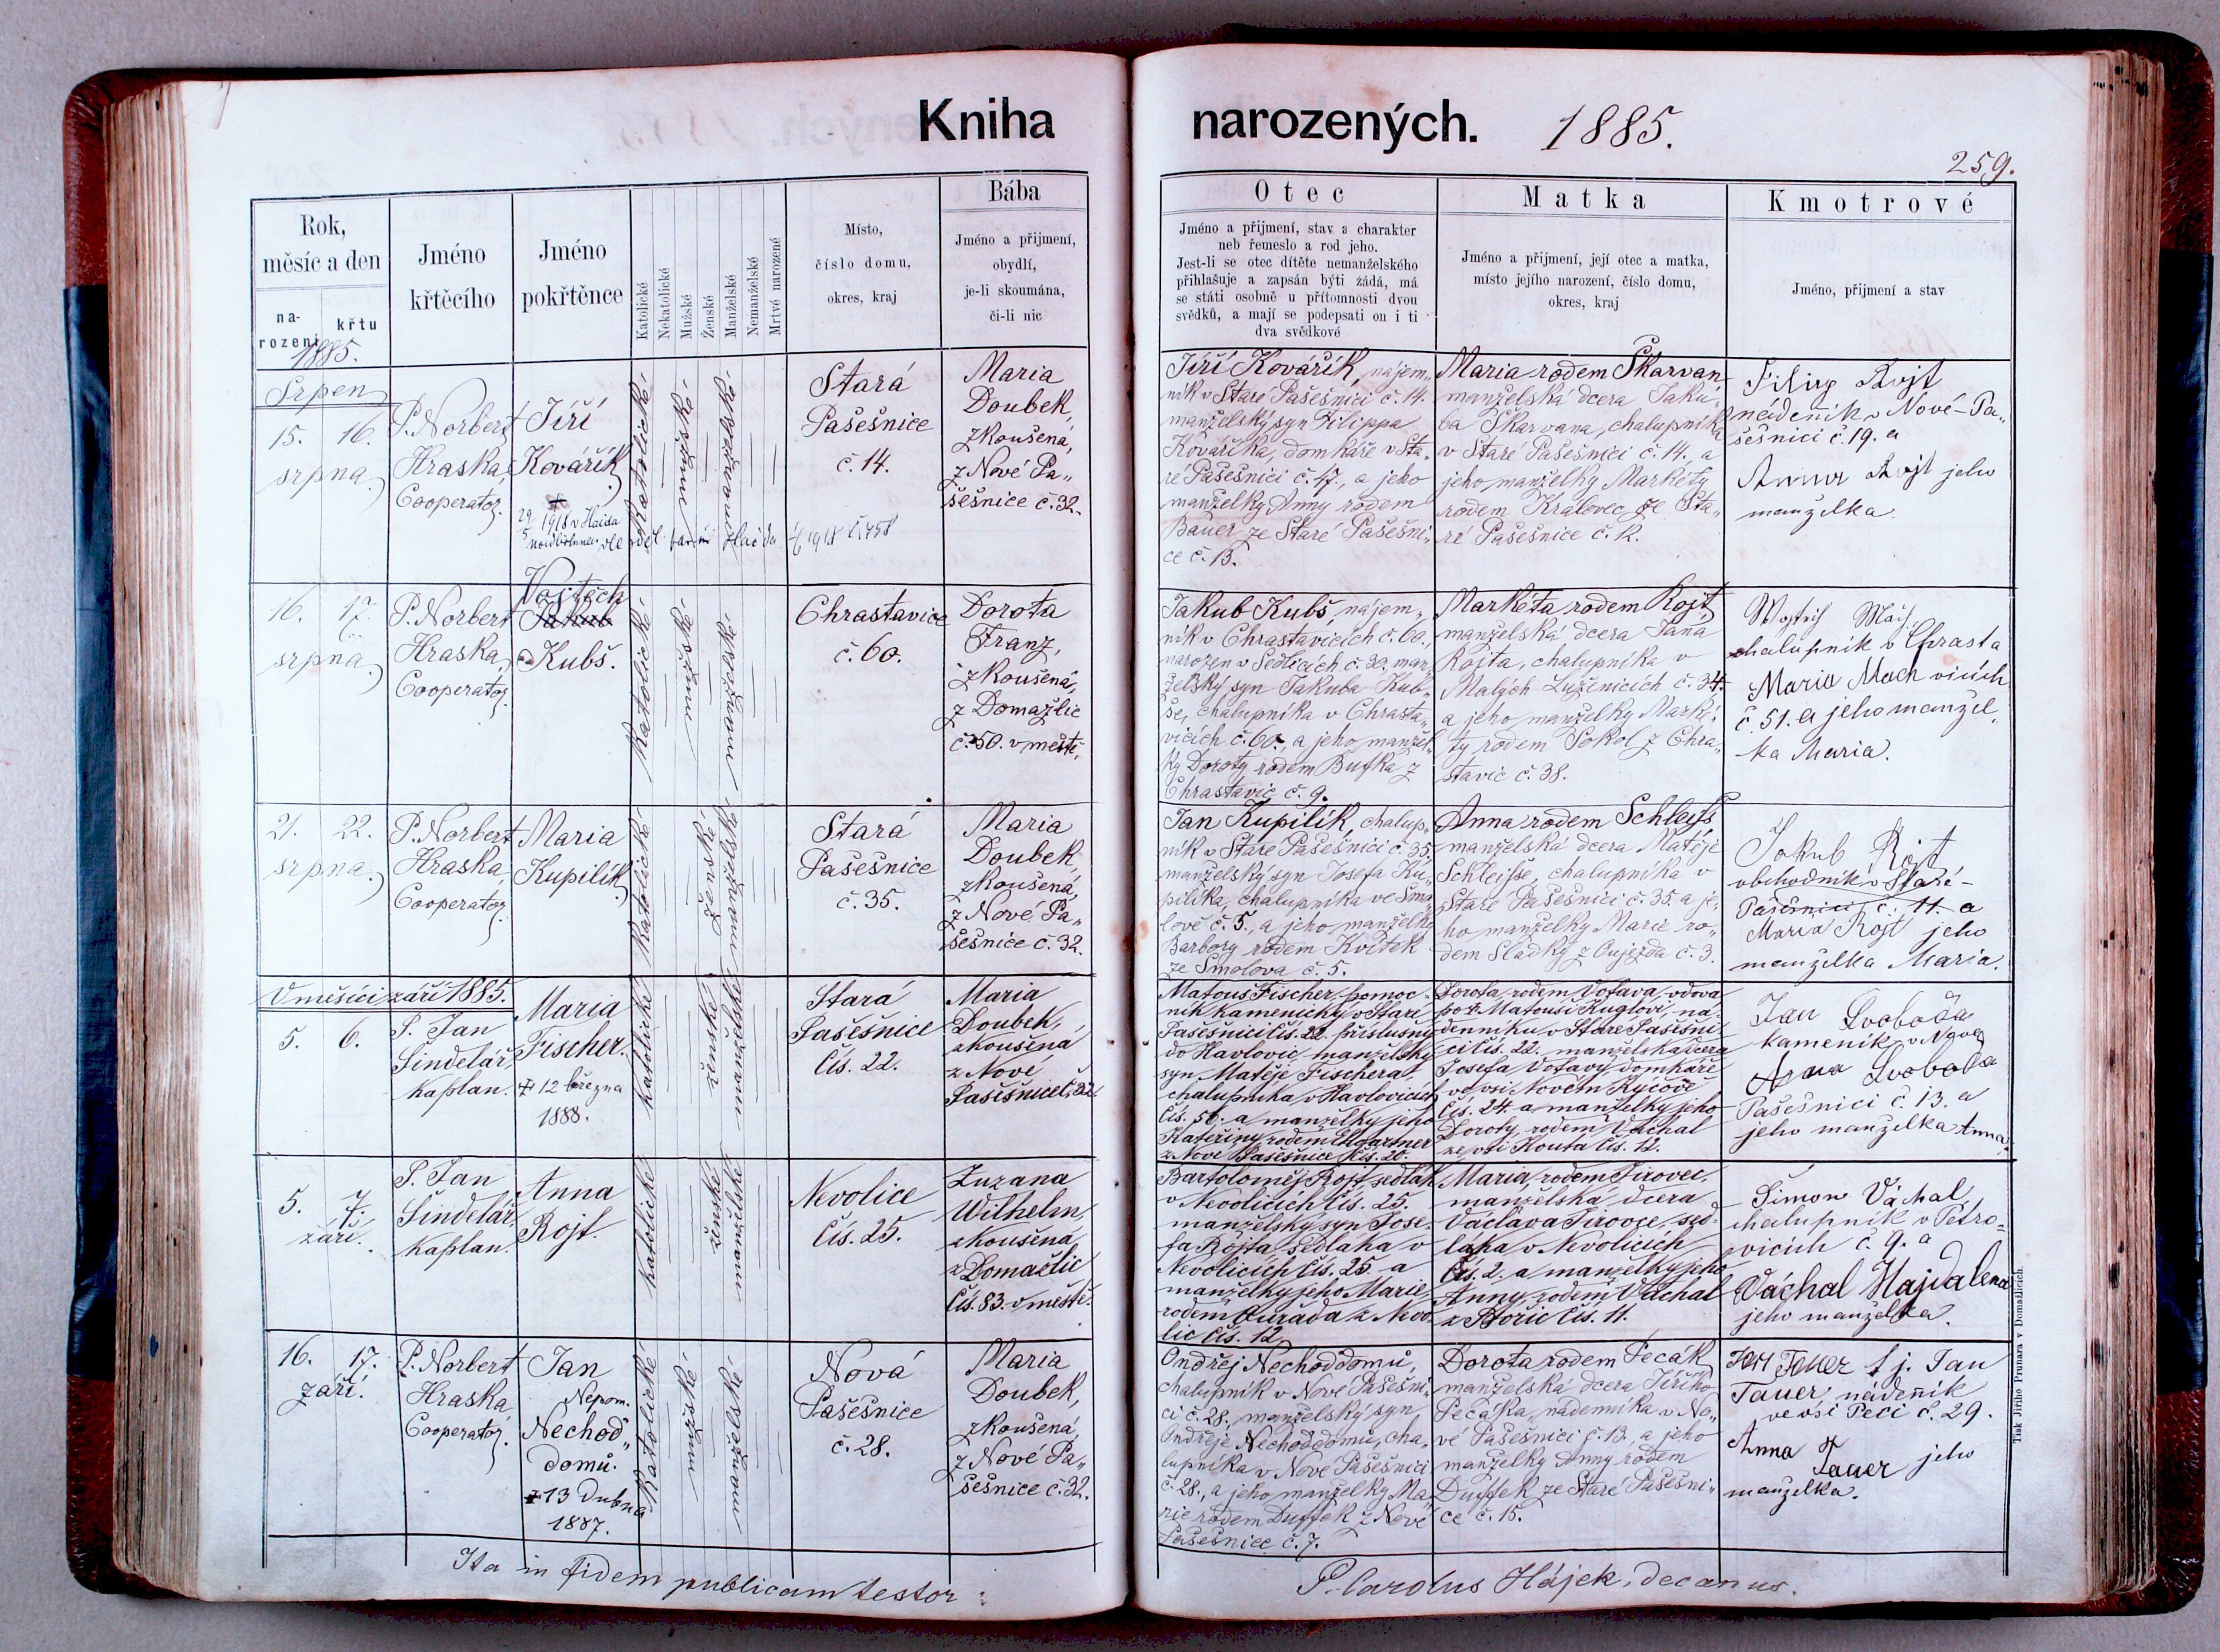 Kniha narozených. 1885.
259.
Rok,
měsíc a den
na-
rození
křtu
1885.
Jméno
křtěcího
Jméno
pokřtěnce
Katolické
Nekatolické
Mužské
Ženské
Manželské
Nemanželské
Mrtvé narozené
Místo,
číslo domu,
okres, kraj
Bába
Jméno a přijmení,
obydlí,
je-li skoumána,
či-li nic
Otec
Jméno a přijmení, stav a charakter
neb řemeslo a rod jeho.
Jest-li se otec dítěte nemanželského
přihlašuje a zapsán býti žádá, má
se státi osobně u přítomnosti dvou
svědků, a mají se podepsati on i ti
dva svědkové
Matka
Jméno a přijmení, její otec a matka,
místo jejího narození, číslo domu,
okres, kraj
Kmotrové
Jméno, přijmení a stav
Srpen
15. 16.
srpna.
P. Norbert
Hraska,
Cooperator.
Jiří
Kovářík
+
29/5 1918 v Haida
katolické
mužské
manželské
Stará
Pašešnice
č. 14.
Maria
Doubek,
zkoušená,
z Nové Pa„
šešnice č. 32.
Jiří Kovářík, najem„
ník v Staré Pašešnici č. 14.
manželský syn Filippa
Kováříka, domkáře v Sta„
ré Pašešnici č. 17., a jeho
manželky Anny rodem
Bauer ze Staré Pašešni„
ce č. 15.
Maria rodem Škarvan
manželská dcera Jaku„
ba Škarvana, chalupníka
v Staré Pašešnici č. 14. a
jeho manželky Markéty
rodem Královec ze Sta„
ré Pašešnice č. 12.
Filip Rojt
nádeník v Nové-Pa„
šešnici č. 19. a
Anna Rojt jeho
manželka
16. 17.
srpna.
P. Norbert
Hraska,
Cooperator.
Vojtěch
Jakub
Kubš.
katolické
mužské
manželské
Chrastavice
č. 60.
Dorota
Franz,
zkoušená,
z Domažlic
č. 50. v městě.
Jakub Kubš, najem„
ník v Chrastavicích č. 60.,
narozen v Sedlicích č. 30. man„
želský syn Jakuba Kub„
še, chalupníka v Chrasta„
vicích č. 60., a jeho manžel„
ky Doroty rodem Bufka z
Chrastavic č. 9.
Markéta rodem Rojt,
manželská dcera Jana
Rojta, chalupníka v
Malých Luženicích č. 34.
a jeho manželky Marké„
ty rodem Sokol z Chra„
stavic č. 38.
chalupník v Chrasta
Maria Mach vicích
č. 51. a jeho manžel„
ka Maria.
21. 22.
srpna.
P. Norbert
Hraska,
Cooperator.
Maria
Kupilík.
katolické
ženské
manželské
Stará
Pašešnice
č. 35.
Maria
Doubek,
zkoušená,
z Nové Pa„
šešnice č. 32.
Jan Kupilík, chalup„
ník v Staré Pašešnici č. 35.
manželský syn Josefa Ku„
pilíka, chalupníka ve Smo„
lově č. 5., a jeho manželky
Barbory rodem Květek
ze Smolova č. 5.
Anna rodem Schleiss
manželská dcera Matěje
Schleisse, chalupníka v
Staré Pašešnici č. 35. a je„
ho manželky Marie ro„
dem Sladky z Oujezda č. 3.
Jakub Rojt
obchodník v Staré-
Pašešnici č. 11. a
Maria Rojt jeho
manželka Maria.
V měsíci září 1885.
5. 6.
P. Jan
Šindelář,
kaplan.
Maria
Fischer.
+ 12 března
1888.
katolické
ženské
manželské
Stará
Pašešnice
čís. 22.
Maria
Doubek,
zkoušená
z Nové
Pašešnice č. 32.
Matouš Fischer, pomoc„
ník kamenický v Staré
Pašešnici čís. 22. příslušný
do Havlovic, manželský
syn Matěje Fischera,
chalupníka v Havlovicích
čís. 56. a manželky jeho
Kateřiny, rodem Ellgartner
z Nové Pašešnice čís. 20.
Dorota, rodem Votava, vdova
po + Matouši Kuglovi, ná„
denníku v Staré Pašešni„
ci čís. 22. manželská dcera
Josefa Votavy, domkáře
ve vsi Novém Kyčově
čís. 24. a manželky jeho
Doroty, rodem Váchal
ze vsi Kouta čís. 12.
Jan Svoboda
kameník v Nové
Anna Svoboda
Pašešnici č. 13. a
jeho manželka Anna.
5. 7.
září.
P. Jan
Šindelář,
kaplan.
Anna
Rojt.
katolické
ženské
manželské
Nevolice
čís. 25.
Zuzana
Wilhelm,
zkoušená,
z Domažlic
čís. 83. v městě.
Bartoloměj Rojt, sedlák
v Nevolicích čís. 25.
manželský syn Jose„
fa Rojta, sedláka v
Nevolicích čís. 25 a
manželky jeho Marie,
rodem Buršada z Nevo„
lic čís. 12.
Maria, rodem Jírovec,
manželská dcera
Václava Jírovce, sed„
láka v Nevolicích
čís. 2. a manželky jeho
Anny, rodem Váchal
z Pořic čís. 11.
Šimon Váchal,
chalupník v Petro„
vicích č. 9. a
Váchal Majdalena
jeho manželka.
16. 17.
září.
P. Norbert
Hraska
Cooperator.
Jan
Nepom.
Nechoď„
domů.
+ 13 Dubna
1887.
katolické
mužské
manželské
Nová
Pašešnice
č. 28.
Maria
Doubek,
zkoušená,
z Nové Pa„
šešnice č. 32.
Ondřej Nechoddomů,
chalupník v Nové Pašešni„
ci č. 28., manželský syn
Ondřeje Nechoddomů, cha„
lupníka v Nové Pašešnici
č. 28., a jeho manželky Ma„
rie rodem Duffek z Nové
Pašešnice č. 7.
Dorota rodem Pecák,
manželská dcera Jiřího
Pecáka, nádenníka v No„
vé Pašešnici č. 13., a jeho
manželky Anny rodem
Duffek ze Staré Pašešni„
ce č. 15.
Tauer t. j. Jan
Tauer nádeník
ve vsi Peci č. 29.
Anna Tauer jeho
manželka.
Ita in fidem publicam testor:
P. Carolus Hájek, decanus.
Tisk Jiřího Prunara v Domažlicích.